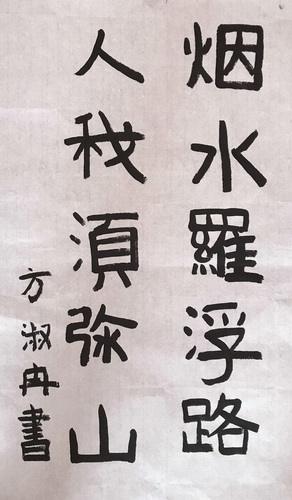 烟水羅浮路
人我須弥山
方淑冉書